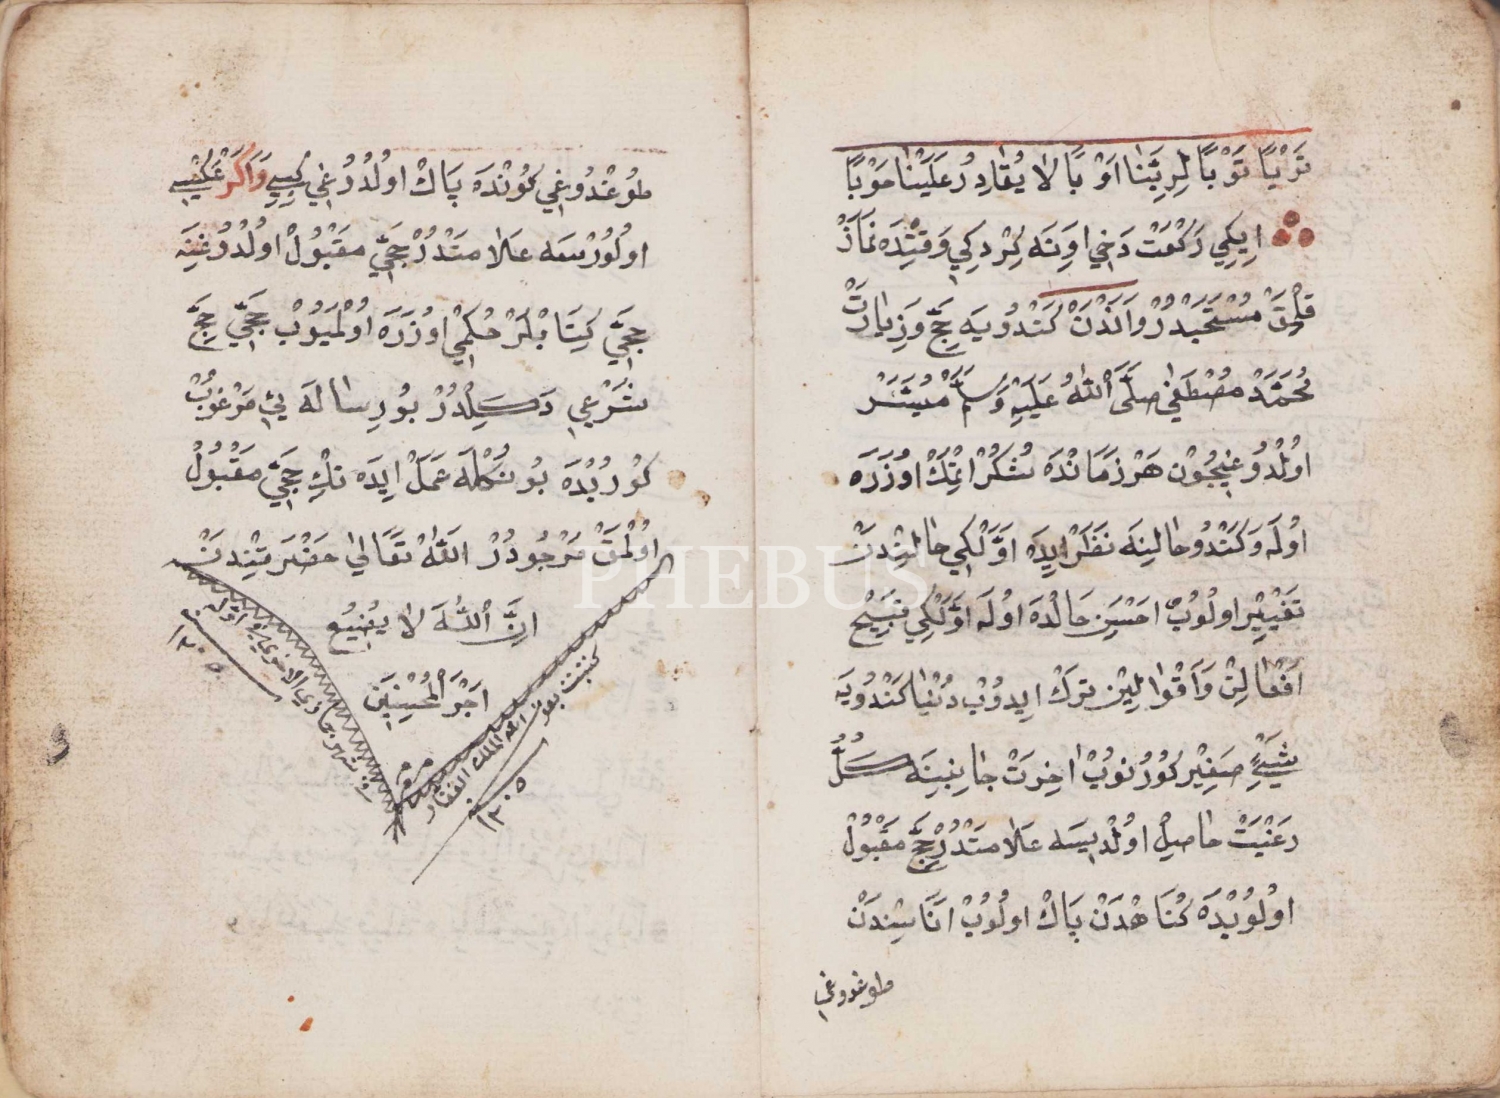 تَوْبًا تَوْبًا لِرَبِّنَا اَوْبًا لَا يُغَادِرُ عَلَيْنَا حَوْبًا
اِيكِي رَكْعَتْ دَخِي اَوِنَه كِرْدِكِي وَقْتِدَه نَمَازْ
قِلْمَقْ مُسْتَحَبْدُرْ وَاَنْدَنْ كَنْدُويَه حَجّ وَزِيَارَتْ
مُحَمَّدْ مُصْطَفٰى صَلَّى اللّٰهُ عَلَيْهِ وَسَلَّمْ مُيَسَّرْ
اُولْدُوغِيچُونْ هَرْ زَمَانْدَه شُكُرْ اِتْمَكْ اوُزَرَه
اوُلَه وَكَنْدُو حَالِينَه نَظَرْ اِيدَه اَوَّلْكِي حَالِنْدَنْ
تَغْيِيرْ اوُلُوبْ اَحْسَنِ حَالْدَه اوُلَه اَوَّلْكِي قَبِيحْ
اَفْعَالِنْ وَاَقْوَالِيْن تَرْكْ ايدُوبْ دُنْيَا كَنْدُويَه
شَيْءِ صَغِيرْ كُورُنوُبْ اَخِرَتْ جَانِبِنَه
رَغْبَتْ حَاصِلْ اوُلْدِيسَه عَلَامَتْدُرْ حَجّ مَقْبُولْ
اوُلُوبْدَه كُنَاهْدَنْ پَاكْ اوُلُوبْ اَنَاسِنْدَنْ
طوغدوغی
طُوغْدُوغِي كُونْدَه پَاكْ اوُلْدُرُغِي كِبِي وَاَكَرْ عَكْسِي
اوُلُورْسَه عَلَامَتْدُرْ حَجِّي مَقْبُولْ اوُلْدُرُغِنَه
حَجِّي كِتَابْلَرْ حُكْمِي اوُزَرَه اوُلْمَيُوبْ حَجِّي حَجّ
شَرْعِي دَكِلْدُرْ بُو رِسَالَه يِي مَرْغُوبْ
كُورُبْدَه بُونُكْلَه عَمَلْ اِيدَه نِكْ حَجِّي مَقْبُولْ
اوُلْمَقْ مَرْجُودُرْ اَللّٰه تَعَالٰى حَضْرَتِنْدَنْ
اِنَّ اللّٰهَ لَا يُضِيعُ
اَجْرَ الْمُحْسِنِينَ
كتبت بعون الله الملك الغفار
١٢٠٥
سنه ١٢٠٥